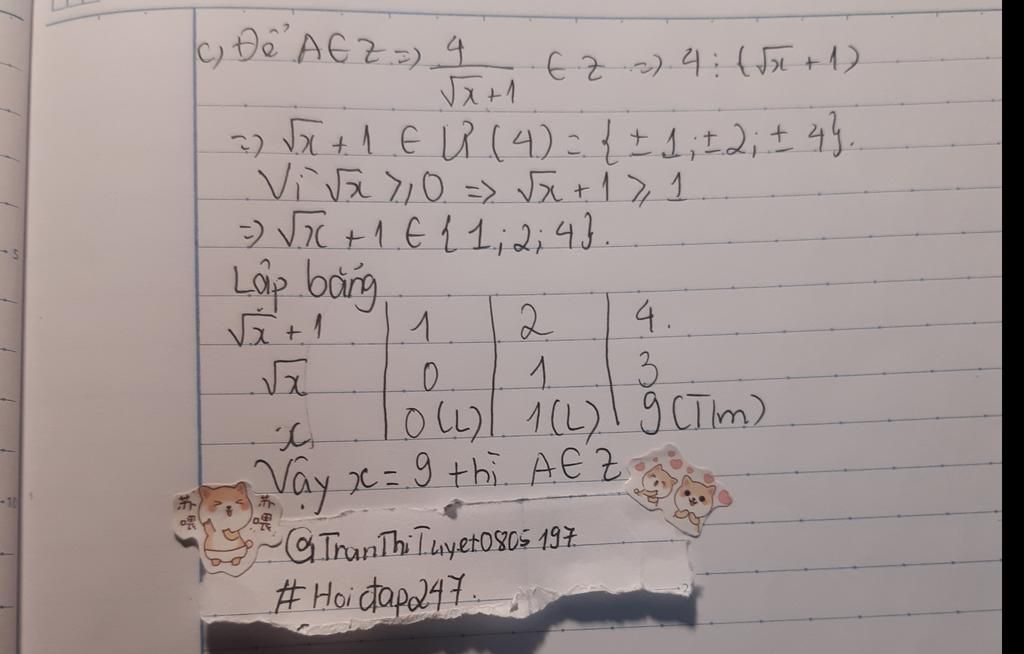 c) Để A ∈ Z => 4/(√x + 1) ∈ Z => 4 ⋮ (√x + 1)
=> √x + 1 ∈ Ư (4) = { ± 1; ± 2; ± 4}.
Vì √x ⩾ 0 => √x + 1 ⩾ 1
=> √x + 1 ∈ {1; 2; 4}.
Lập bảng
√x + 1 | 1 | 2 | 4.
√x | 0 | 1 | 3
x | 0 (L) | 1 (L) | 9 (T/m)
Vậy x = 9 thì A ∈ Z
苏喂 苏喂
~ @TranThiTuyet0805197
#Hoidap247.